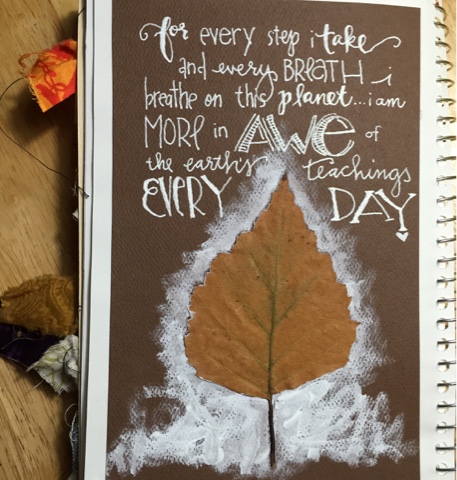 for every step i take
and every BREATH i
breathe on this planet...i am
MORE in AWE of
the earth's teachings
EVERY DAY